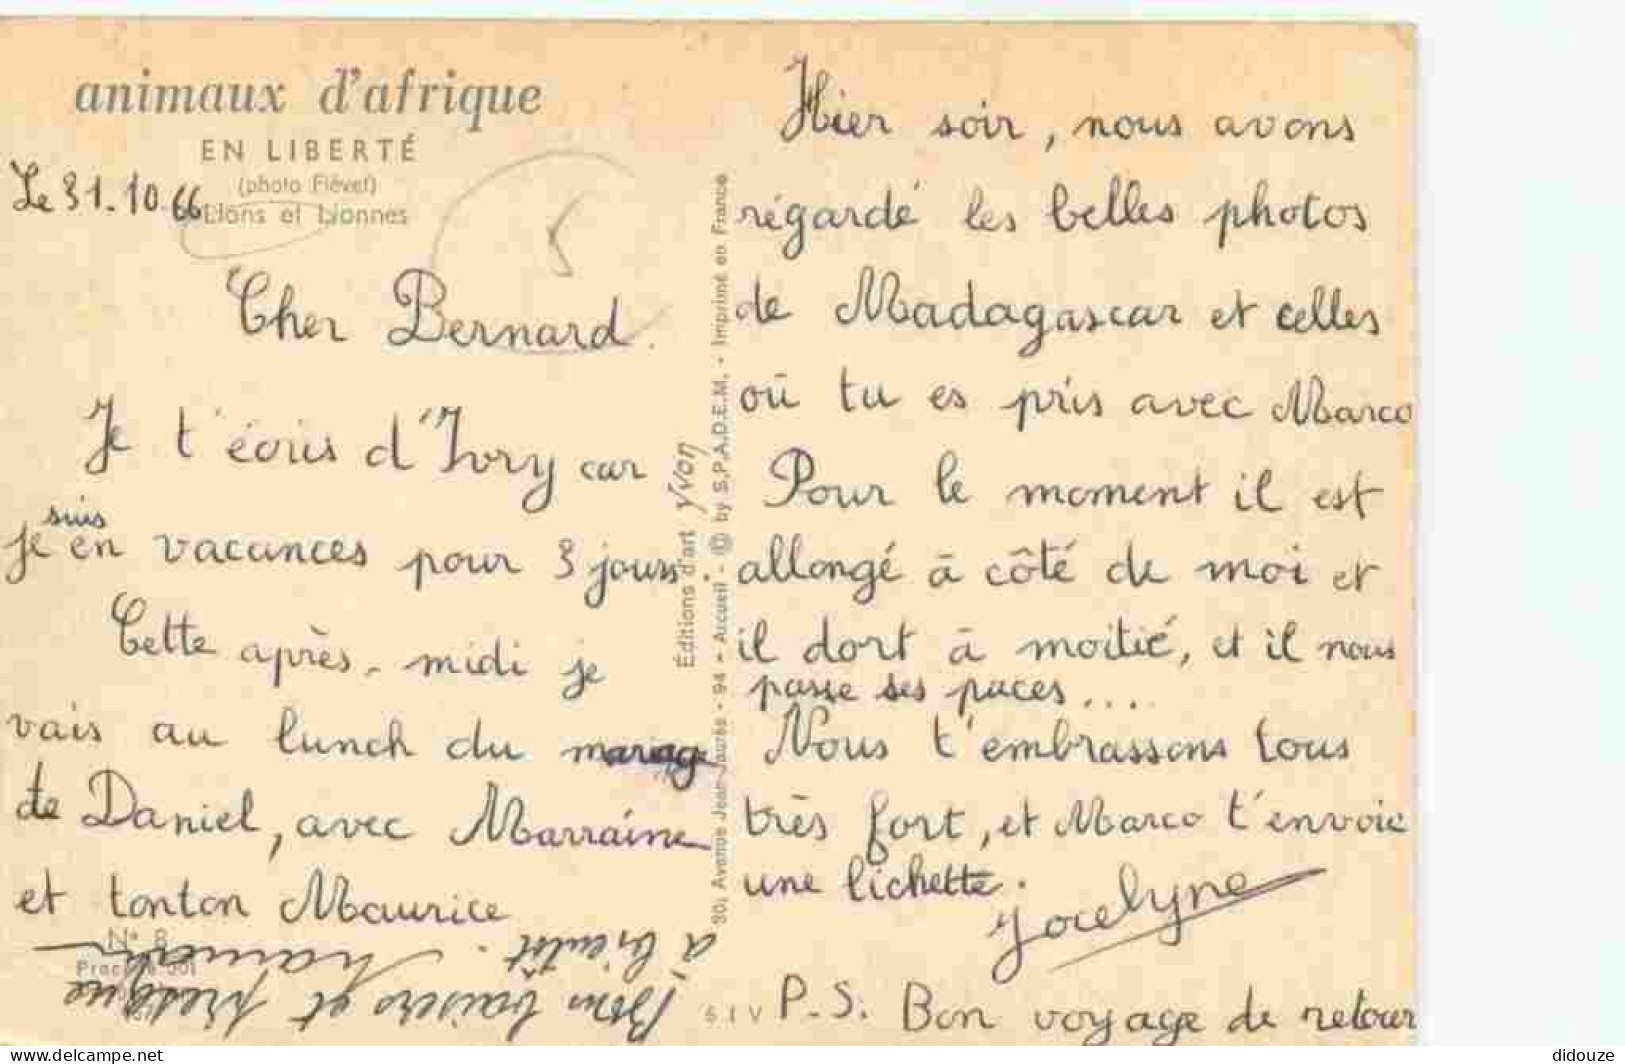 animaux d'afrique
EN LIBERTÉ
(photo Fiével)
Lions et Lionnes
Le 31-10-66
Cher Bernard.
Je t'écris d'Ivry car
je suis en vacances pour 3 jours.
Cette après-midi je
vais au lunch du mariage
de Daniel, avec Marraine
et tonton Maurice
N° 8
Bons baisers et presque
à bientôt.
Éditions d'art yvon
30, Avenue Jean-Jaurès - 94 - Arcueil - © by S.P.A.D.E.M. - Imprimé en France
Hier soir, nous avons
régardé les belles photos
de Madagascar et celles
où tu es pris avec Marco
Pour le moment il est
allongé à côté de moi et
il dort à moitié, et il nous
passe ses puces....
Nous t'embrassons tous
très fort, et Marco t'envoie
une lichette.
Jocelyne
5 I V
P.S. Bon voyage de retour
delcampe.net
didouze